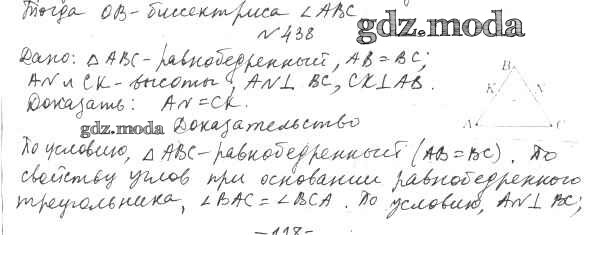 Тогда OB - биссектриса ∠ABC.
gdz.moda
N 438
Дано: △ABC - равнобедренный, AB = BC;
AN и CK - высоты, AN⊥ BC, CK⊥AB.
Доказать: AN = CK.
B
K N
A C
gdz.moda Доказательство
По условию, △ABC - равнобедренный (AB = BC). По
свойству углов при основании равнобедренного
треугольника, ∠BAC = ∠BCA. По условию, AN⊥ BC;
-118-